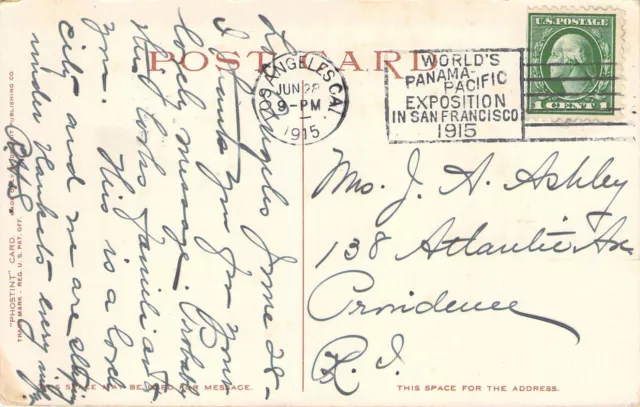 POST CARD
LOS ANGELES, CAL.
JUN 28
9-PM
1915
WORLD'S
PANAMA-
PACIFIC
EXPOSITION
IN SAN FRANCISCO
1915
U.S. POSTAGE
1 CENT 1
Los Angeles June 28-
I thank you for your
lovely message. Probably
this looks familiar to
you. This is a lovely
city and we are sleeping
under blankets every night.
Mrs. J. A. Ashley
138 Atlantic Av.
Providence
R. I.
"PHOSTINT" CARD
TRADE MARK - REG. U.S. PAT. OFF.
PUBLISHING CO.
THIS SPACE MAY BE USED FOR MESSAGE.
THIS SPACE FOR THE ADDRESS.